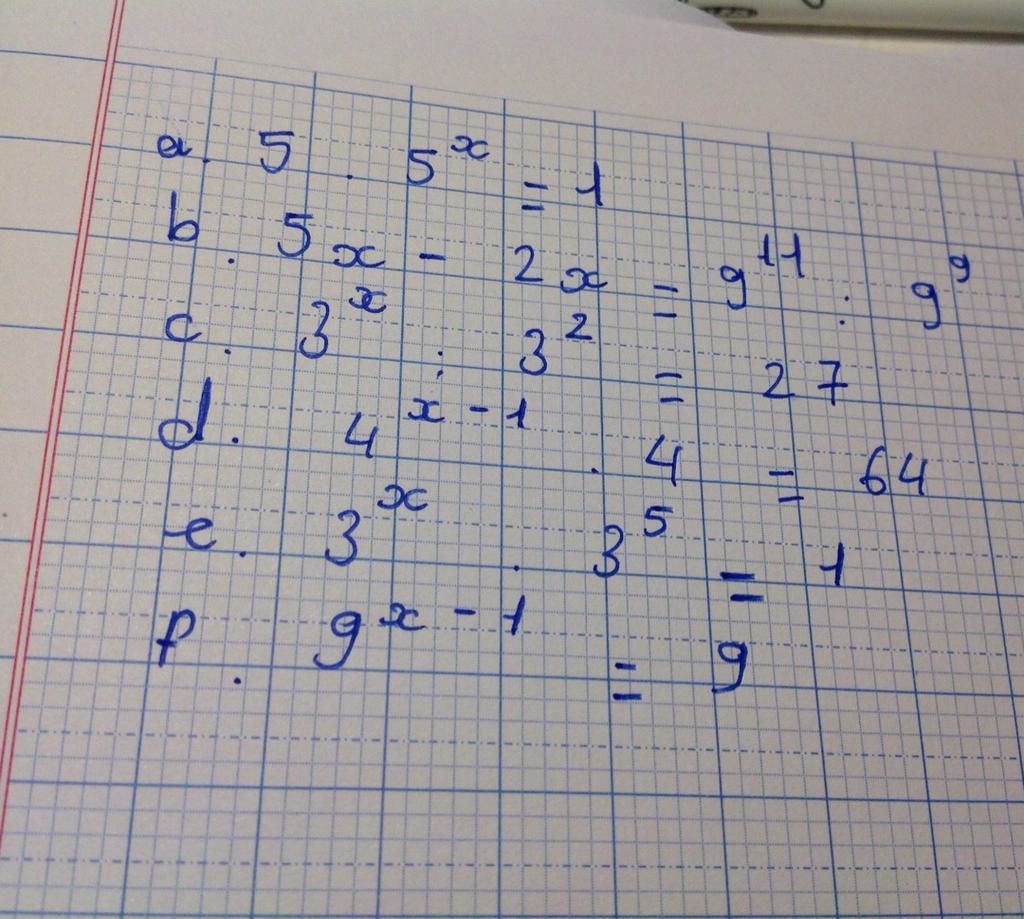 a. 5 . 5^x = 1
b. 5x - 2x = 9^11 : 9^9
c. 3^x : 3^2 = 27
d. 4^x-1 . 4 = 64
e. 3^x . 3^5 = 1
p. 9^x-1 = 9